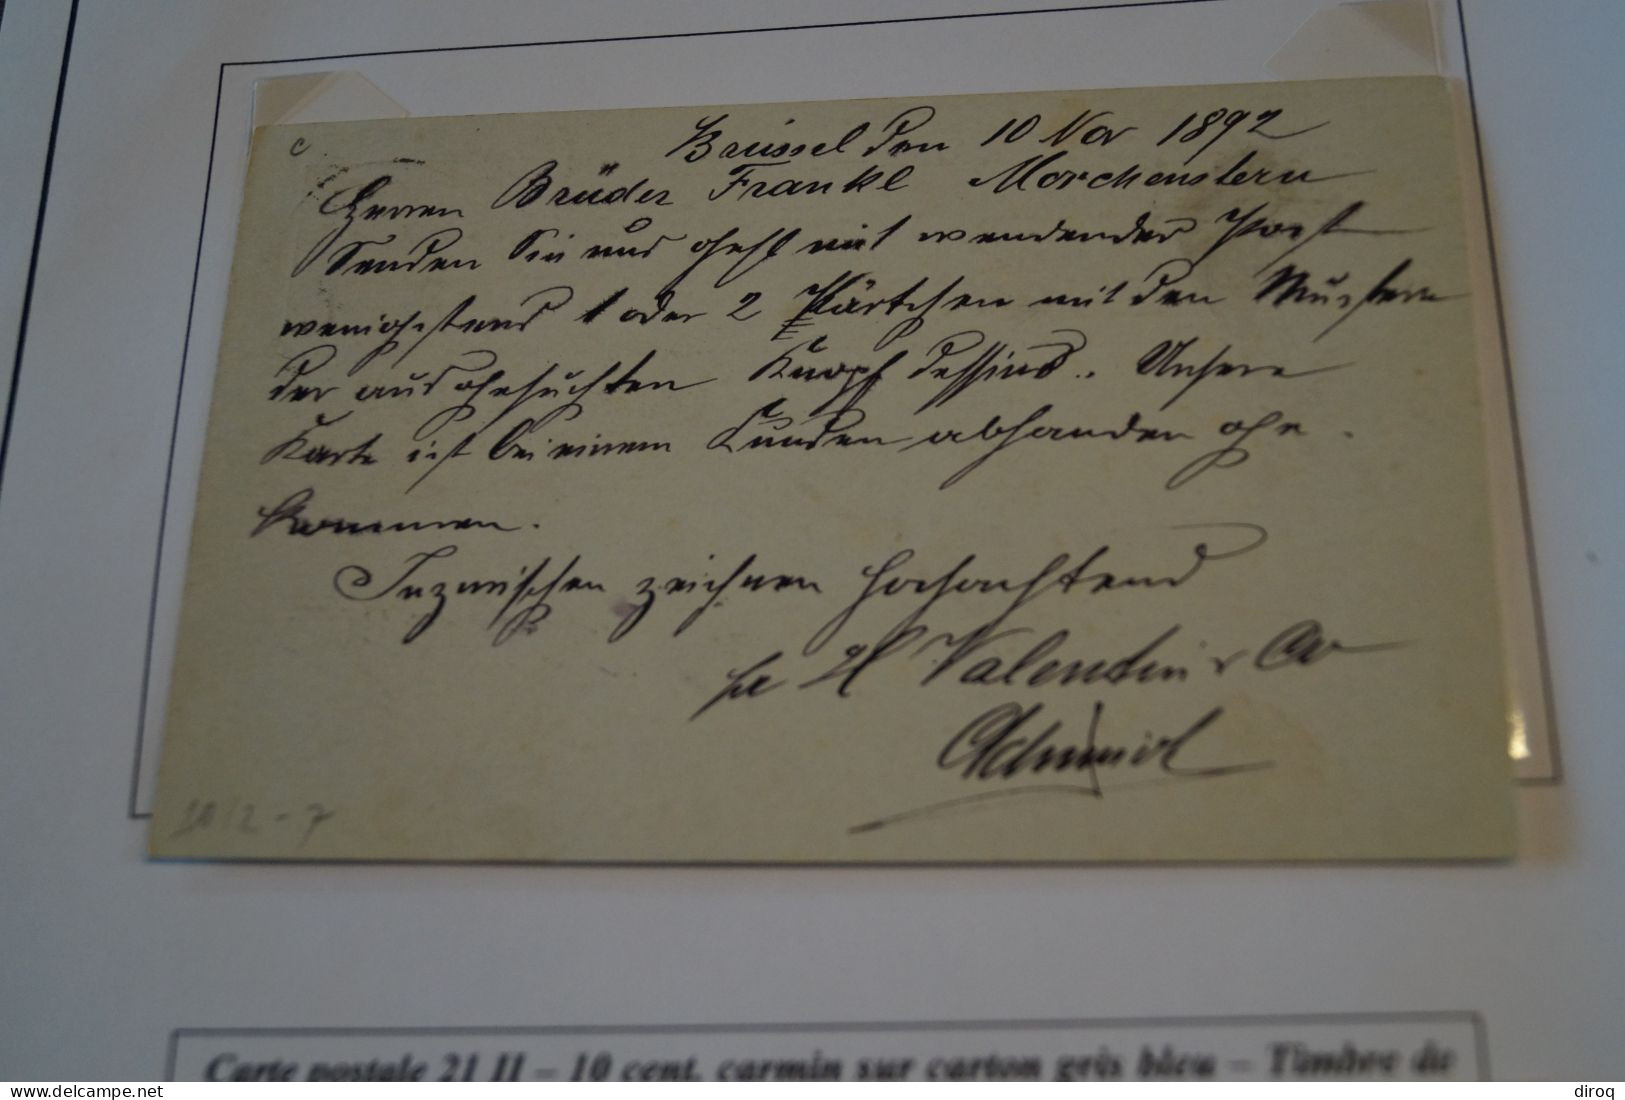 c
Brüssel den 10 Nov 1892
Herren Brüder Frankl Morchenstern
Senden Sie uns gefl mit wendender Post
wenigstens 1 oder 2 Kärtchen mit den Mustern
der ausgesuchten Knopf dessins. Unsere
Karte ist bei einem Kunden abhanden ge-
kommen.
Inzwischen zeichnen hochachtend
pr H Valentin & Co
Schmid
Carte postale 21 II – 10 cent. carmin sur carton gris bleu – Timbre de
diroq